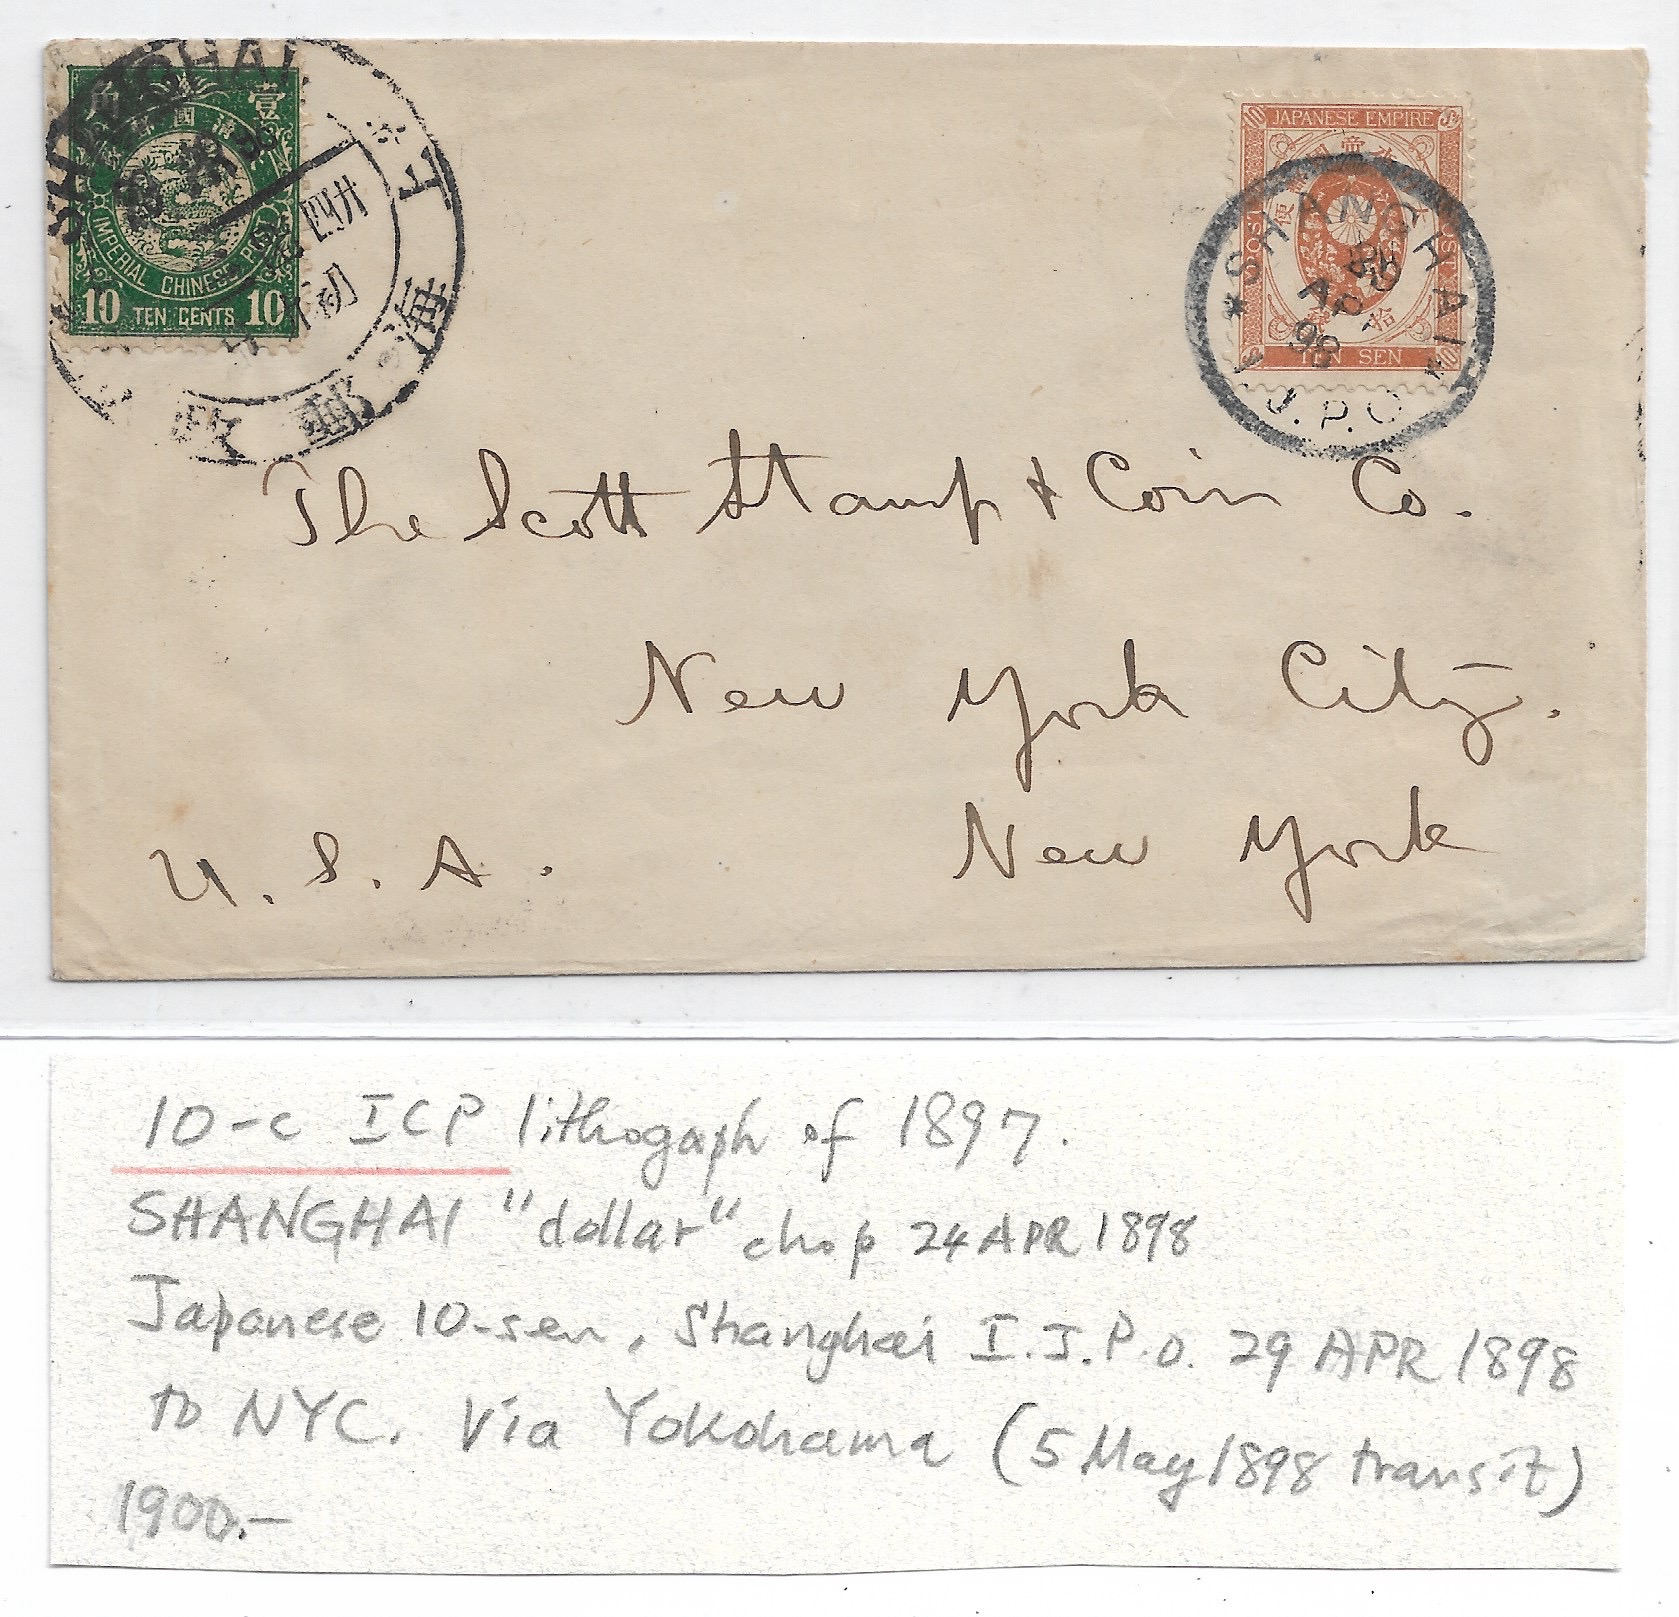 SHANGHAI
壹
IMPERIAL CHINESE POST
10 TEN CENTS 10
上海郵政
JAPANESE EMPIRE
POST
POST
TEN SEN
SHANGHAI
APR
98
J.P.O
The Scott Stamp & Coin Co.
New York City.
U.S.A. New York
10-c ICP lithogaph of 1897.
SHANGHAI "dollar" chop 24 APR 1898
Japanese 10-sen, Shanghai I.J.P.O. 29 APR 1898
to NYC. Via Yokohama (5 May 1898 transit)
1900.—